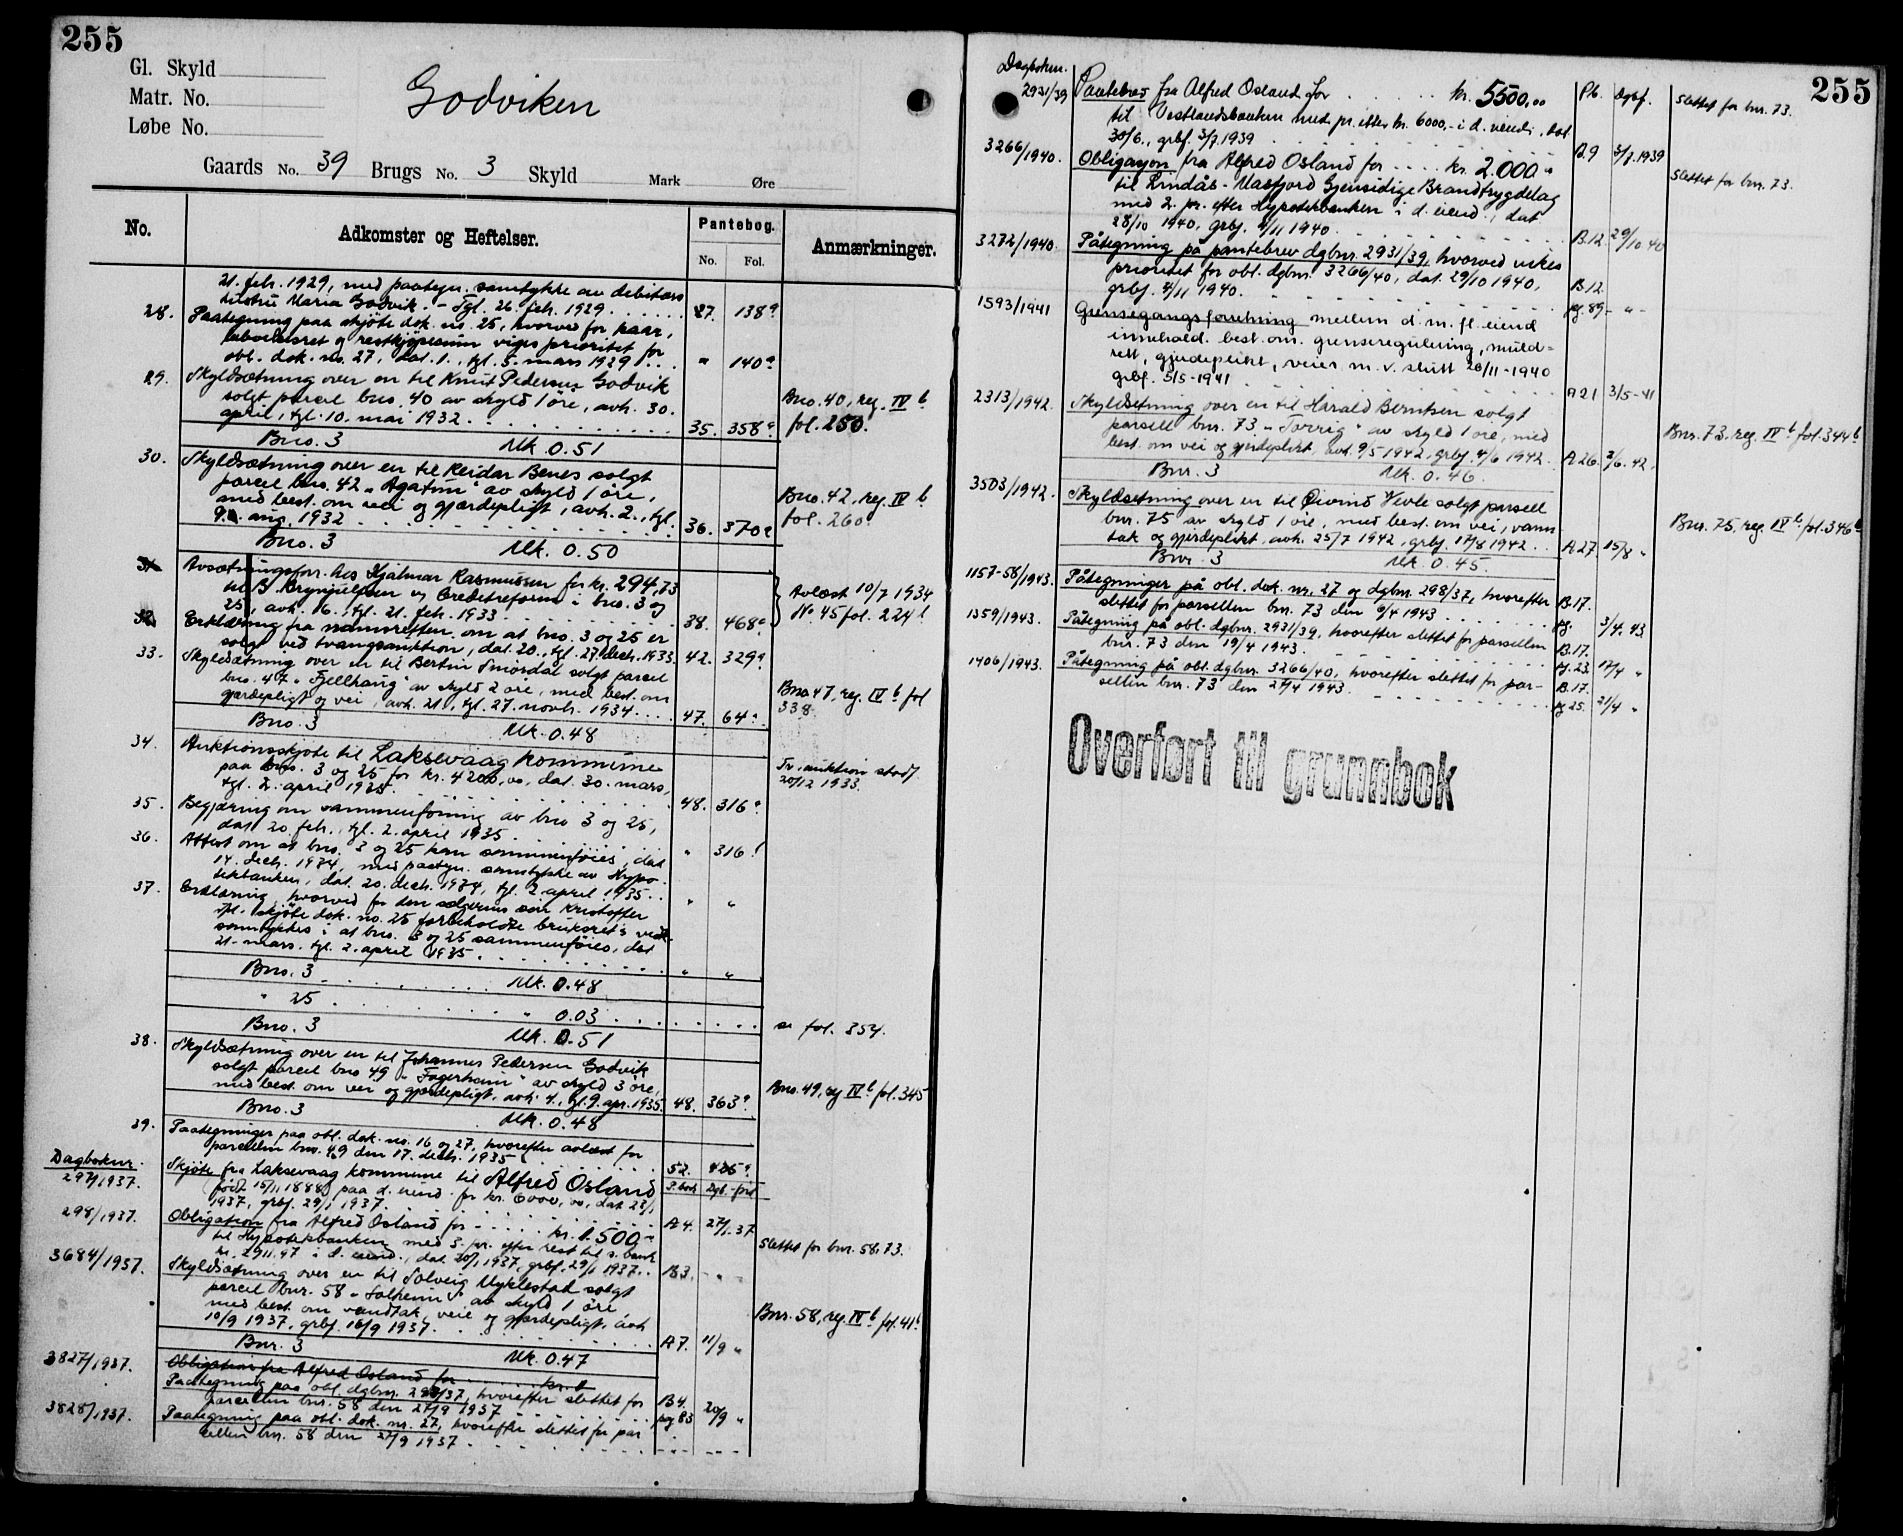 255
Gl. Skyld
Matr. No.
Løbe No.
Godviken
Gaards No. 39 Brugs No. 3 Skyld Mark Øre
No. Adkomster og Heftelser. Pantebog. No. Fol. Anmærkninger.
21. feb. 1929, med paategn. samtykke av debitors
hustru Maria Godvik. - Tgl. 26. feb. 1929 . . . 27. 138a
28. Paategning paa skjöte dok. no. 25, hvorved for kaar,
og restkjöpesum viges prioritet for
obl. dok. no. 27, dat. 1., tgl. 5. mars 1929 . . . " 140a
29. Skyldsætning over en til Knut Pedersen Godvik
solgt parcel bno. 40 av skyld 1 öre, avh. 30.
april, tgl. 10. mai 1932 . . . 35. 358a Bno. 40, reg. IV b fol. 250.
Bno. 3 Mk 0.51
30. Skyldsætning over en til Reidar Benes solgt
parcel bno. 42 „Agatun" av skyld 1 öre,
med best. om vei og gjærdepligt, avh. 2., tgl.
9. aug. 1932 . . . 36. 370a Bno. 42, reg. IV b fol. 260.
Bno. 3 Mk. 0.50
31. Avsætningsforr. hos Hjalmar Rasmussen for kr. 294,73
til B. Brynjulfsen og Creditreform i bno. 3 og
25, avh. 16., tgl. 21. feb. 1933 . . . 38. 468a Avlæst 10/7 1934 No 45 fol. 224 b
32. Erklæring fra namsretten om at bno. 3 og 25 er
solgt ved tvangsauktion, dat. 20., tgl. 27. decb. 1933. 42. 329a
33. Skyldsætning over en til Bertin Smörsdal solgt parcel
bno. 47 „Fjellhaug" av skyld 2 öre, med best. om
gjærdepligt og vei, avh. 21., tgl. 27. novb. 1934 . . . 47. 64a. Bno 47, reg. IV b fol 338
Bno. 3 Mk. 0.48
34. Auktionsskjöte til Laksevaag kommune
paa bno. 3 og 25 for kr. 4200,00, dat. 30. mars,
tgl. 2. april 1935. . . . 48. 316a Tv. auktion 20/12 1933.
35. Begjæring om sammenföining av bno 3 og 25,
dat. 20. feb., tgl. 2. april 1935 . . . " 316b
36. Attest om at bno. 3 og 25 kan sammenföies, dat
14. decb. 1934, med paategn. samtykke av Hypo-
tekbanken, dat. 20. decb. 1934, tgl. 2 april 1935 . . " "
37. Erklæring, hvorved for den
skjöte dok. no. 25 forbeholdte bruksret
samtykkes i at bno. 3 og 25 sammenföies, dat
21. mars, tgl. 2. april 1935 . . . " "
Bno. 3 . . . Mk. 0.48
" 25 . . . " 0.03 . . .
Bno. 3 Mk. 0.51 se fol. 354.
38. Skyldsætning over en til Johannes Pedersen Godvik
solgt parcel bno 49 „Fagerheim" av skyld 3 öre,
med best. om vei og gjærdepligt, avh. 4., tgl. 9. apr. 1935. 48. 363a. Bno. 49, reg IV b fol. 345
Bno. 3 Mk. 0.48
39. Paategninger paa obl. dok. no. 16 og 27, hvorefter avlæst for
parcellen bno. 49 den 17. decb. 1935 . . . 52. 426a.
Dagboknr. P. bok Dgb. förd
297/1937. Skjöte fra Laksevaag kommune til Alfred Osland
født 15/11 1888, paa d. eiend. for kr. 6000,00, dat 23/1
1937, grbf. 29/1 1937. . . . A 4. 27/1 37
298/1937. Obligation fra Alfred Osland for . . . kr. 1.500"
til Hypotekbanken med 3. pr. efter rest til s. bank
kr. 2911.47 i d. eiend., dat. 20/1 1937, grbf. 29/1 1937. . B3. " Slettet for bnr. 58, 73.
3684/1937. Skyldsætning over en til Solveig Myklestad solgt
parcel bnr. 58 „Solheim" av skyld 1 öre
med best. om vandtak, veie og gjærdepligt, avh
10/9 1937, grbf. 16/9 1937. . . . A 7. 11/9 " Bnr. 58, reg IV b fol. 41b
Bnr. 3 Mk. 0.47
3827/1937. Obligation fra Alfred Osland for . . . kr.
Paategning paa obl. dgbnr. 298/37, hvorefter slettet for
parcellen bnr. 58 den 21/9 1937 . . . B4. pg 83 20/9 "
3828/1937. Paategning paa obl. dok. nr. 27, hvorefter slettet for par
cellen bnr. 58 den 21/9 1937 . . . - " - - " -
255
Dagboknr. P.b. Dgbf.
2931/39 Pantebrev fra Alfred Osland for . . . kr. 5500,00 Slettet for bnr. 73.
til Vestlandsbanken med pr. etter kr. 6000,- i d. eiend., dat
30/6., grbf. 3/7 1939 . . . B.9 3/7 1939
3266/1940. Obligasjon fra Alfred Osland for . . . kr. 2.000" Slettet for bnr. 73.
til Lindås - Masfjord Gjensidige Brandtrygdelag
med 2. pr. efter Hypotekbanken i d. eiend., dat
28/10 1940, grbf. 4/11 1940 . . . B.12 29/10 40
3272/1940. Påtegning på pantebrev dgbnr. 2931/39, hvorved vikes
prioritet for obl. dgbnr. 3266/40, dat. 29/10 1940,
grbf. 4/11 1940. . . . B.12 pg. 89 - " -
1593/1941 Grensegangsforretning mellem d. m. fl. eiend
innehold. best. om. grenseregulering, muld-
rett, gjerdeplikt, veier m. v. slutt 26/11-1940
grbf. 5/5-1941 . . . A 21 3/5-41
2313/1942. Skyldsetning over en til Harald Berntsen solgt
parsell bnr. 73 „Torrig" av skyld 1 øre, med
best. om vei og gjerdeplikt, avh. 9/5 1942, grbf. 4/6 1942. . A 26. 2/6. 42. Bnr. 73, reg. IV b fol. 344b
Bnr. 3 Mk. 0.46.
3503/1942. Skyldsetning over en til Øivind Vevle solgt parsell
bnr. 75 av skyld 1 øre, med best. om vei, vann-
tak og gjerdeplikt, avh. 25/7 1942, grbf. 17/8 1942. . A 27. 15/8 " Bnr. 75, reg. IV b fol. 346b
Bnr. 3 Mk. 0.45.
1157-58/1943. Påtegninger på obl. dok. nr. 27 og dgbnr. 298/37, hvorefter
slettet for parsellen bnr. 73 den 9/4 1943 . . . B.17. pg. 3/4. 43.
1359/1943. Påtegning på obl. dgbnr. 2931/39, hvorefter slettet for parsellen
bnr. 73 den 19/4 1943. . . . B.17. pg. 23. 17/4 "
1406/1943. Påtegning på obl. dgbnr. 3266/40, hvorefter slettet for par-
sellen bnr. 73 den 27/4 1943. . . . B.17. pg 25. 21/4 "
Overført til grunnbok